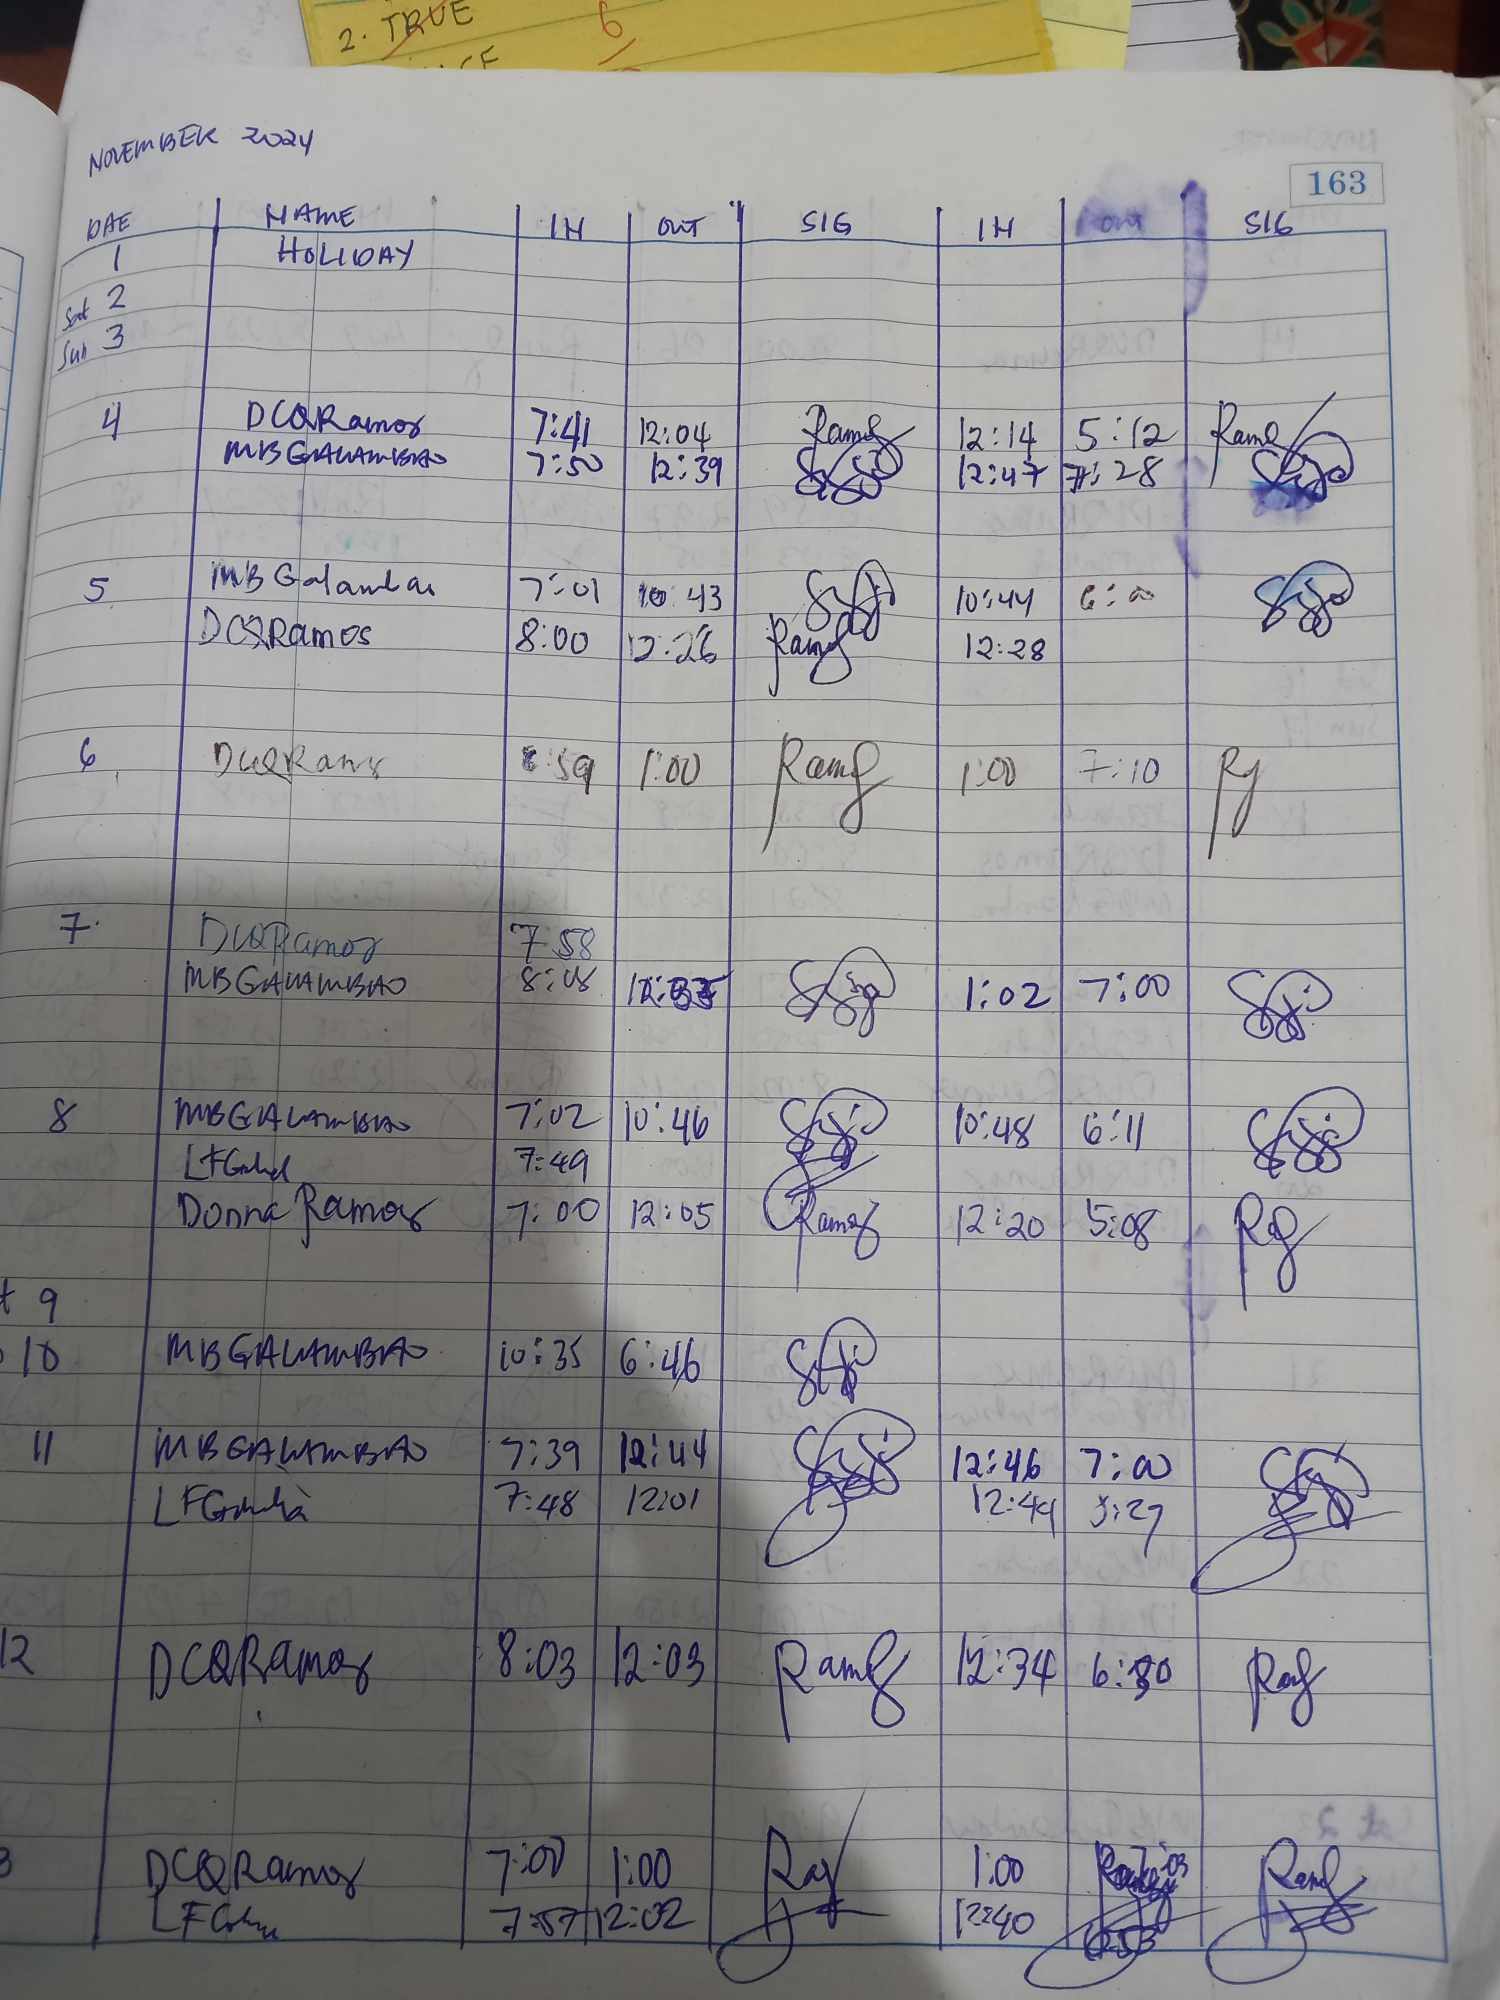 2. TRUE
6
NOVEMBER 2024
163
DAE NAME IN OUT SIG IN OUT SIG
1 HOLIDAY
Sat 2
Sun 3
4 DCQRamos 7:41 12:04 Ramos 12:14 5:12 Ramos
MBGALAMBAO 7:50 12:39 12:47 7:28
5 MBGalambao 7:01 10:43 10:44 6:00
DCQRamos 8:00 12:26 Ramos 12:28
6 DCQRamos :59 1:00 Ramos 1:00 7:10
7. DCQRamos 7:58
MBGALAMBAO 8:08 1:02 7:00
8 MBGALAMBAO 7:02 10:46 10:48 6:11
7:49
Donna Ramos 7:00 12:05 Ramos 12:20 5:08
9
10 MBGALAMBAO 10:35 6:46
11 MBGALAMBAO 7:39 12:44 12:46 7:00
7:48 12:01 12:44 5:27
12 DCQRamos 8:03 12:03 Ramos 12:34 6:30
3 DCQRamos 7:00 1:00 1:00 Ramos
7:57 12:02 12:40